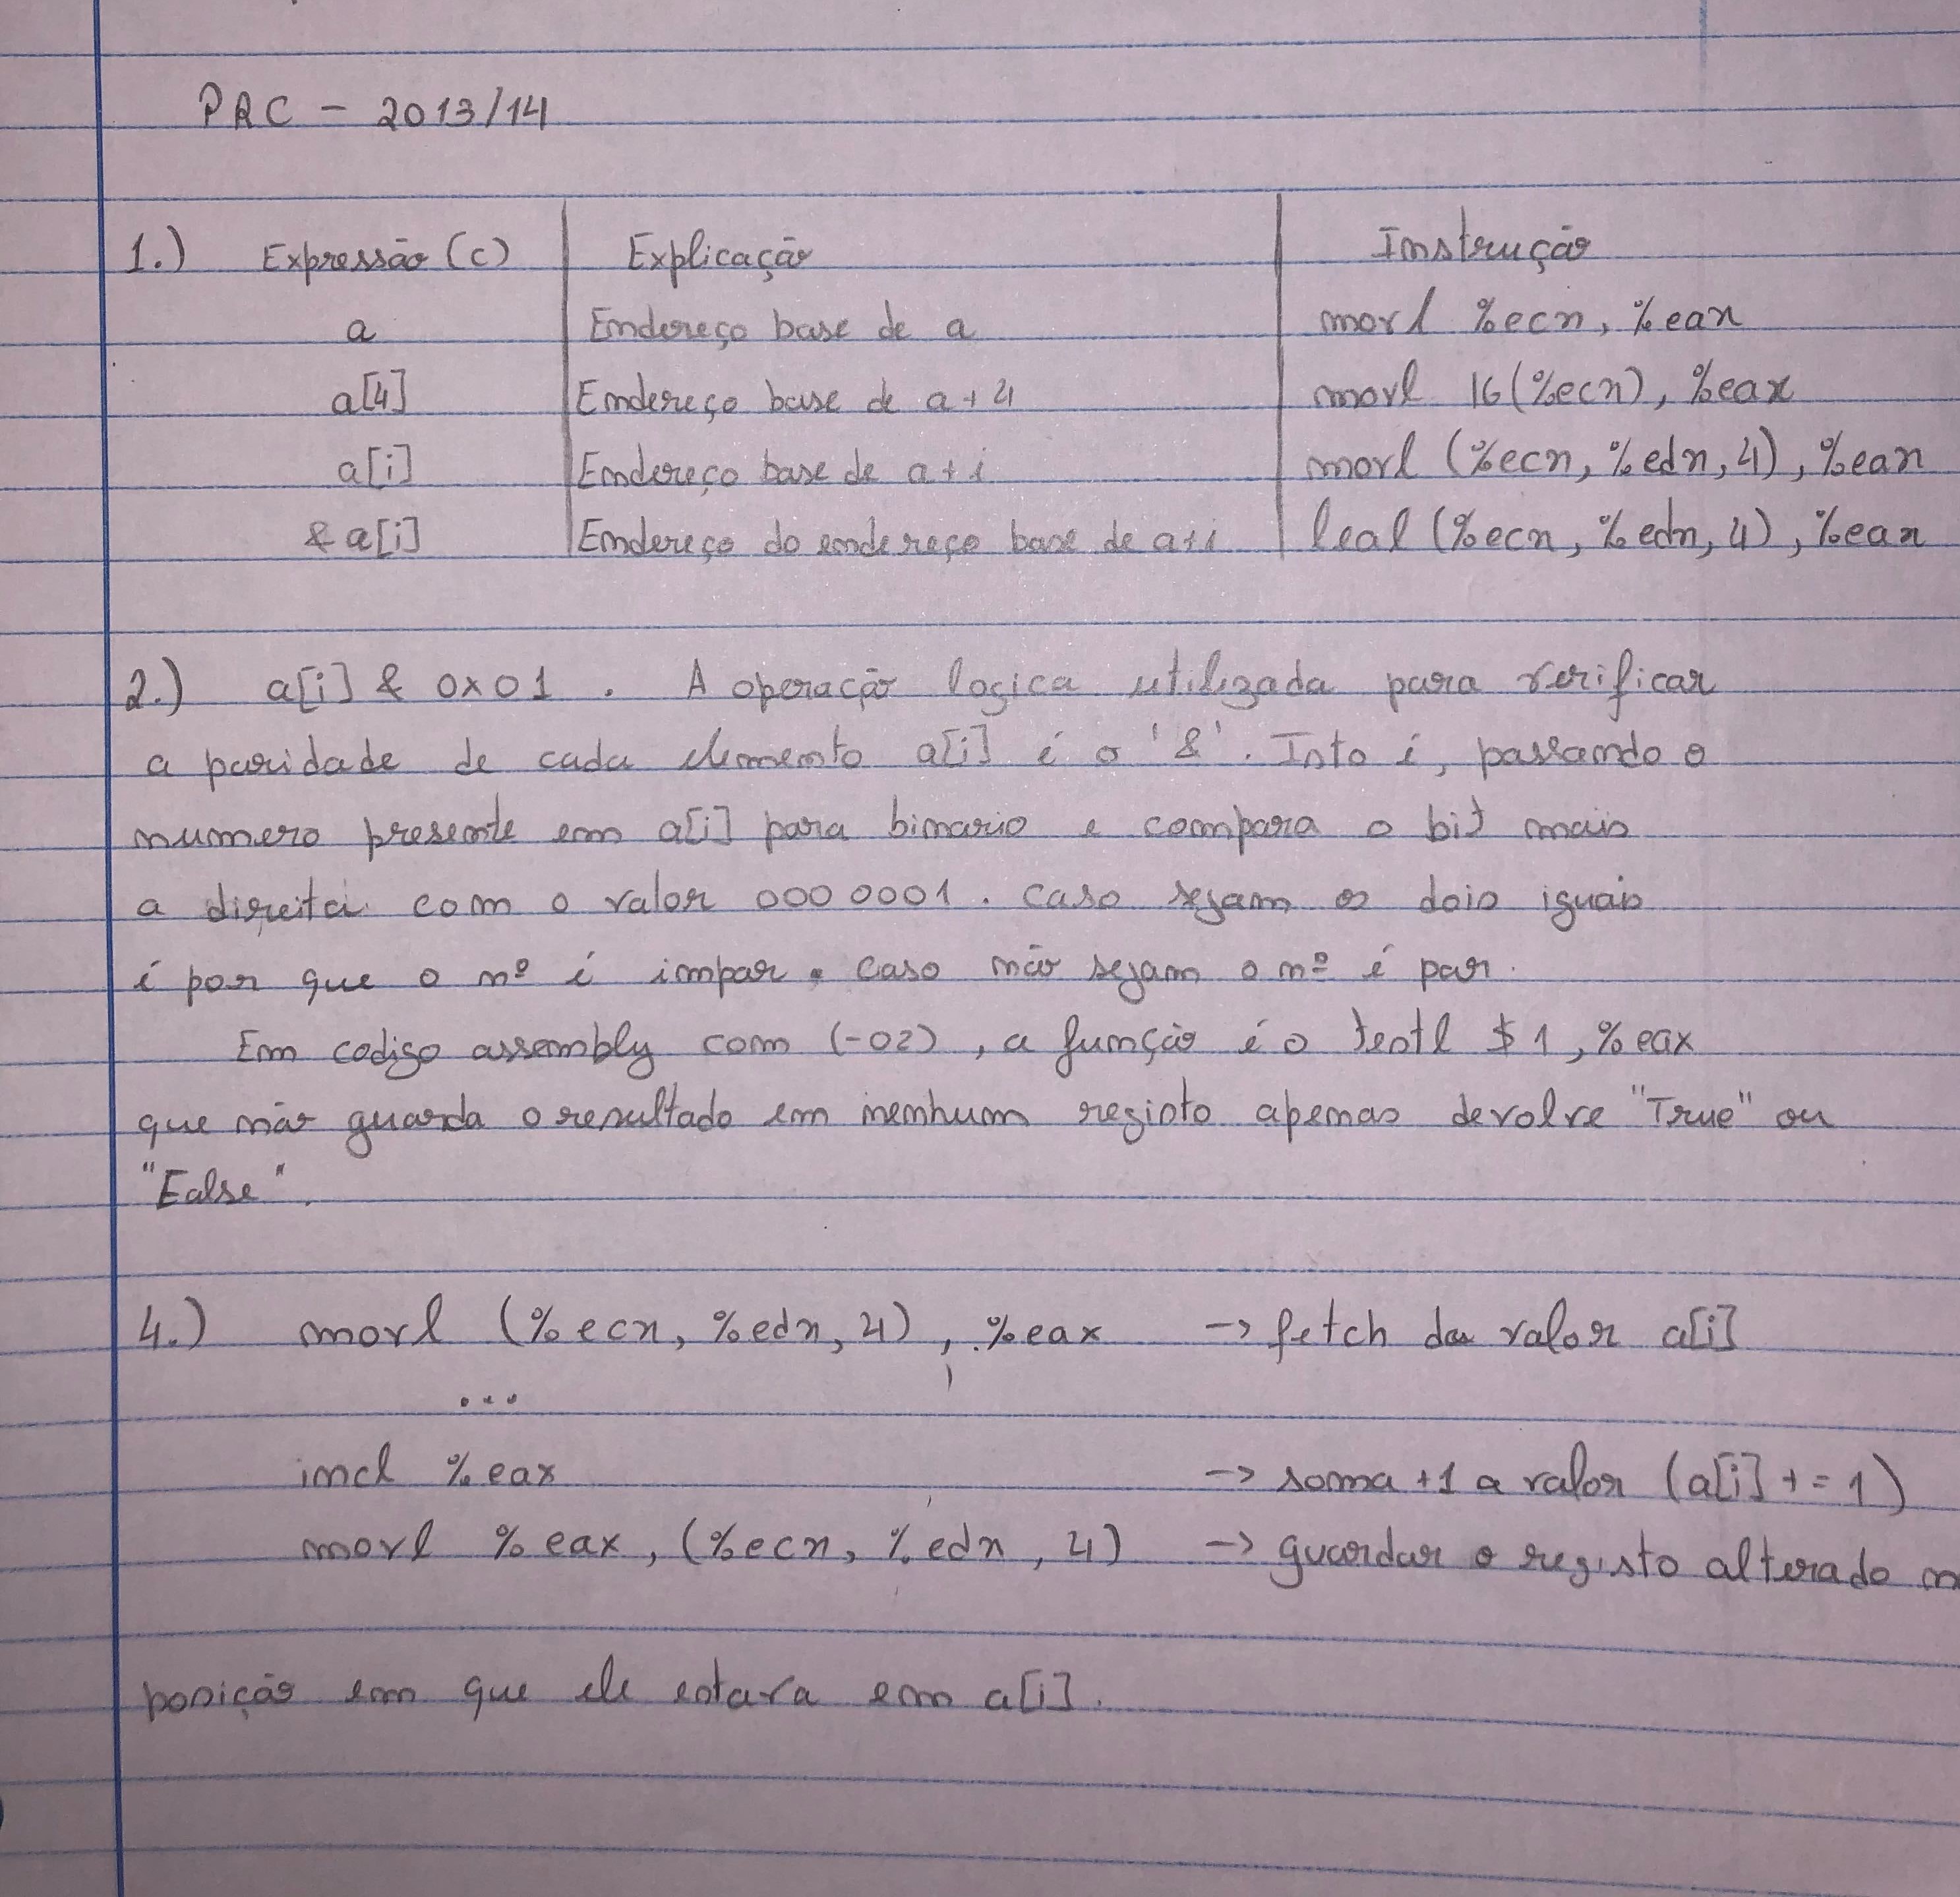 PRC - 2013/14
1.) Expressão (C) Explicação Instrução
a Endereço base de a movl %ecx, %eax
a[4] Endereço base de a+4 movl 16(%ecx), %eax
a[i] Endereço base de a+i movl (%ecx, %edx, 4), %eax
& a[i] Endereço do endereço base de a+i leal (%ecx, %edx, 4), %eax
2.) a[i] & 0x01 . A operação logica utilizada para verificar
a paridade de cada elemento a[i] é o '&'. Isto é, passando o
numero presente em a[i] para binario e compara o bit mais
a direita com o valor 0000001. Caso sejam os dois iguais
é por que o nº é impar. Caso não sejam o nº é par.
Em codigo assembly com (-O2), a função é o testl $1, %eax
que não guarda o resultado em nenhum registo apenas devolve "True" ou
"False".
4.) movl (%ecx, %edx, 4), %eax -> fetch do valor a[i]
...
incl %eax -> soma +1 a valor (a[i] += 1)
movl %eax, (%ecx, %edx, 4) -> guardar o registo alterado
posição em que ele estava em a[i].